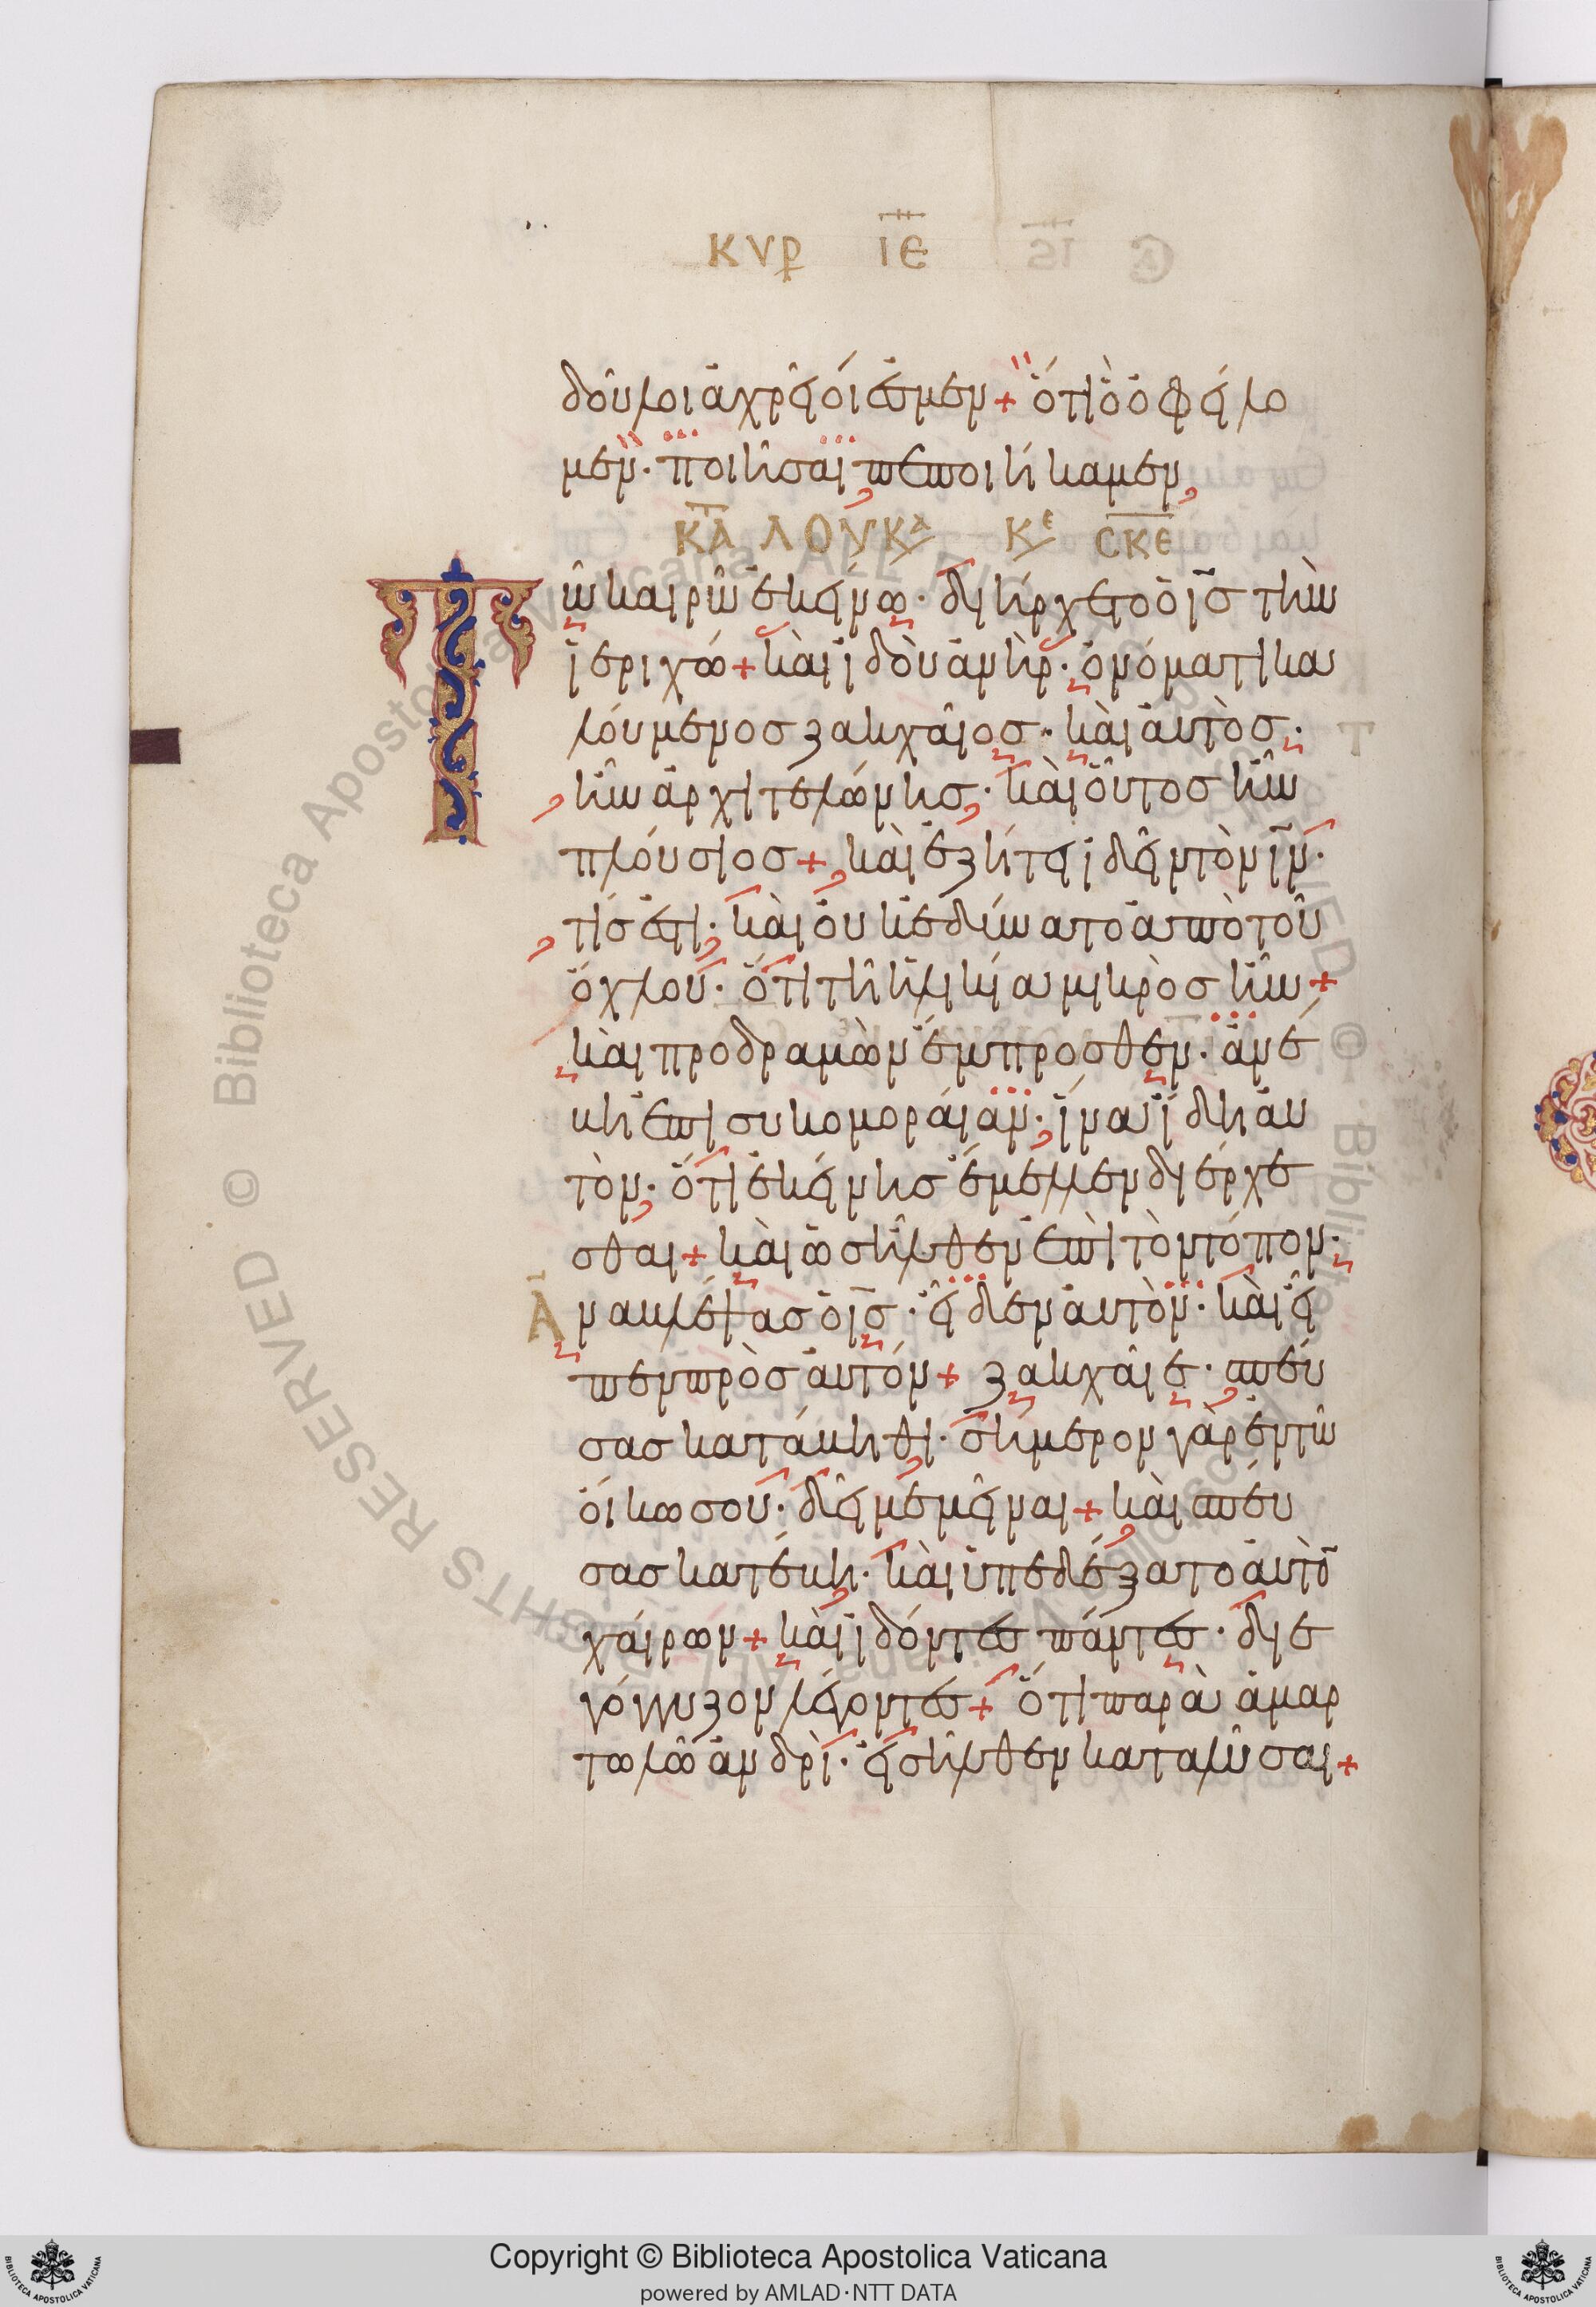 ΚΥΡ ΙΕ
δοῦλοι ἀχρεῖοί ἐσμεν + ὅτι ὃ ὀφείλο
μεν · ποιῆσαι πεποιήκαμεν,
ΚΑ ΛΟΥΚΑ ΚΕ ϹΚΕ
Τῶ καιρῶ ἐκείνω · διήρχετο ὁ ις τὴν
ἱεριχώ + καὶ ἰδοὺ ἀνὴρ · ὀνόματι κα
λούμενος ζακχαῖος · καὶ αὐτὸς ·
ἦν ἀρχιτελώνης · καὶ οὗτος ἦν
πλούσιος + καὶ ἐζήτει ἰδεῖν τὸν ιν ·
τίς ἐστι · καὶ οὐκ ἐδύνατο ἀπὸ τοῦ
ὄχλου · ὅτι τῆ ἡλικία μικρὸς ἦν +
καὶ προδραμὼν ἔμπροσθεν · ἀνέ
βη ἐπὶ συκομοραίαν · ἵνα ἴδη αὐ
τὸν · ὅτι ἐκείνης ἔμελλεν διέρχε
σθαι + καὶ ὡς ἦλθεν ἐπὶ τὸν τόπον ·
Ἀναβλέψας ὁ ις · εἶδεν αὐτὸν · καὶ εἶ
πεν πρὸς αὐτόν + ζακχαῖε · σπεύ
σας κατάβηθι · σήμερον γὰρ ἐν τῶ
οἴκω σου · δεῖ με μεῖναι + καὶ σπεύ
σας κατέβη · καὶ ὑπεδέξατο αὐτὸ
χαίρων + καὶ ἰδόντες πάντες · διε
γόγγυζον λέγοντες + ὅτι παρὰ ἁμαρ
τωλῶ ἀνδρὶ · εἰσῆλθεν καταλῦσαι +
Copyright © Biblioteca Apostolica Vaticana
powered by AMLAD·NTT DATA